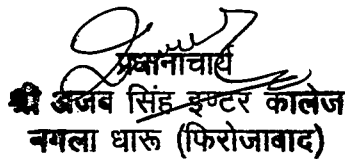 प्रधानाचार्य
श्री अजब सिंह इण्टर कालेज
नगला धारू (फिरोजावाद)